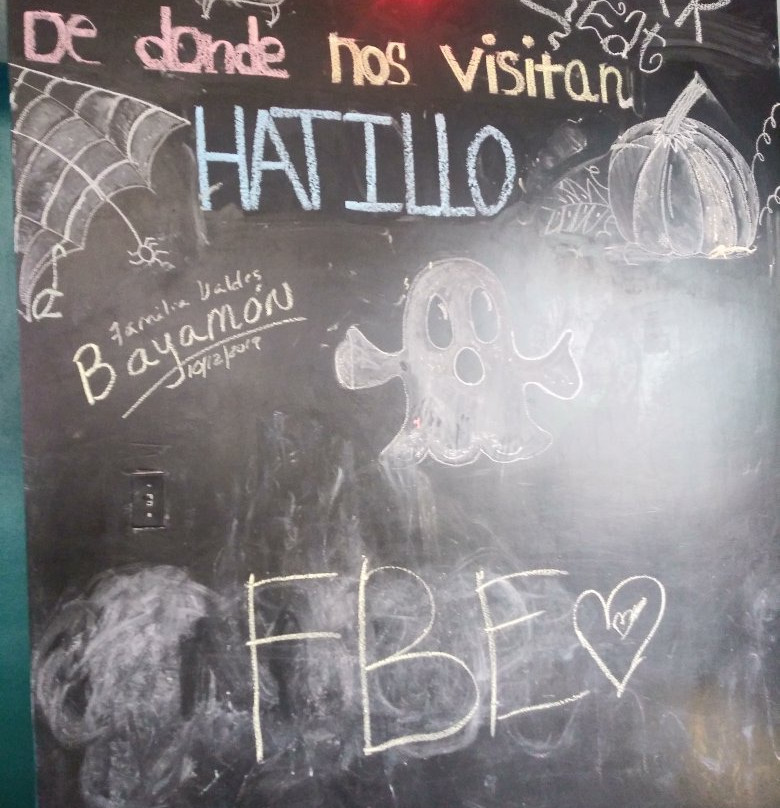 De donde nos visitan
HATILLO
Familia Valdes
Bayamón
10/12/2019
FBE